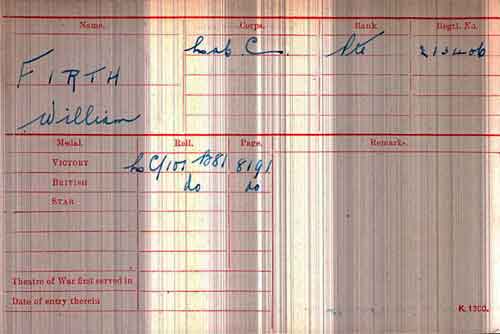 Name. Corps. Rank. Regtl. No.
Lab. C. Pte
FIRTH
William
Medal. Roll. Page. Remarks.
VICTORY C/101 B81 8191
BRITISH do do
STAR
Theatre of War first served in
Date of entry therein
K. 1380.